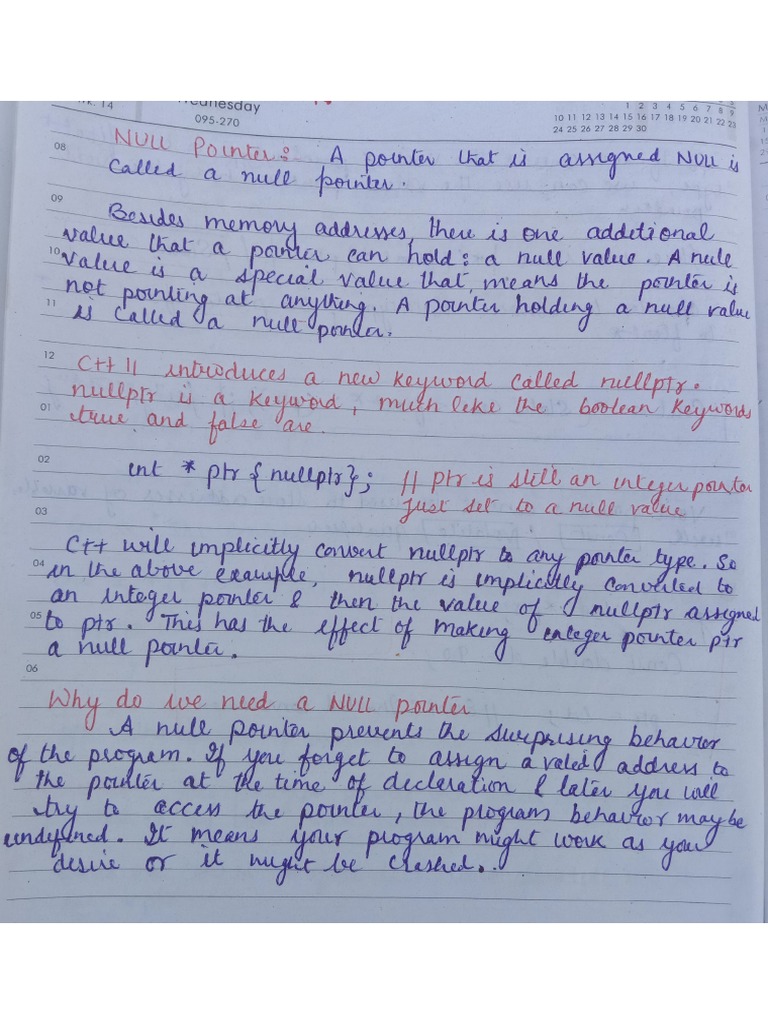 Wk. 14 Wednesday 1 2 3 4 5 6 7 8 9
095-270 10 11 12 13 14 15 16 17 18 19 20 21 22 23
24 25 26 27 28 29 30
08 NULL Pointer: A pointer that is assigned NULL is
called a null pointer.
09
Besides memory addresses, there is one additional
value that a pointer can hold: a null value. A null
10 value is a special value that means the pointer is
not pointing at anything. A pointer holding a null value
11 is called a null pointer.
12 C++ 11 introduces a new keyword called nullptr.
nullptr is a keyword, much like the boolean keywords
01 true and false are.
02 int * ptr {nullptr}; // ptr is still an integer pointer
just set to a null value
03
C++ will implicitly convert nullptr to any pointer type. So
04 in the above example, nullptr is implicitly converted to
an integer pointer & then the value of nullptr assigned
05 to ptr. This has the effect of making integer pointer ptr
a null pointer.
06
Why do we need a NULL pointer
A null pointer prevents the surprising behavior
of the program. If you forget to assign a valid address to
the pointer at the time of declaration & later you will
try to access the pointer, the program behavior may be
undefined. It means your program might work as your
desire or it might be crashed.